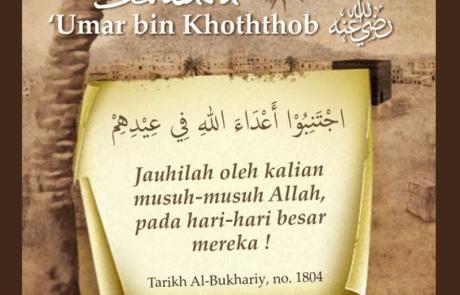 ‘Umar bin Khoththob رضي الله عنه
اجْتَنِبُوْا أَعْدَاءَ اللهِ فِي عِيْدِهِمْ
Jauhilah oleh kalian
musuh-musuh Allah,
pada hari-hari besar
mereka !
Tarikh Al-Bukhariy, no. 1804